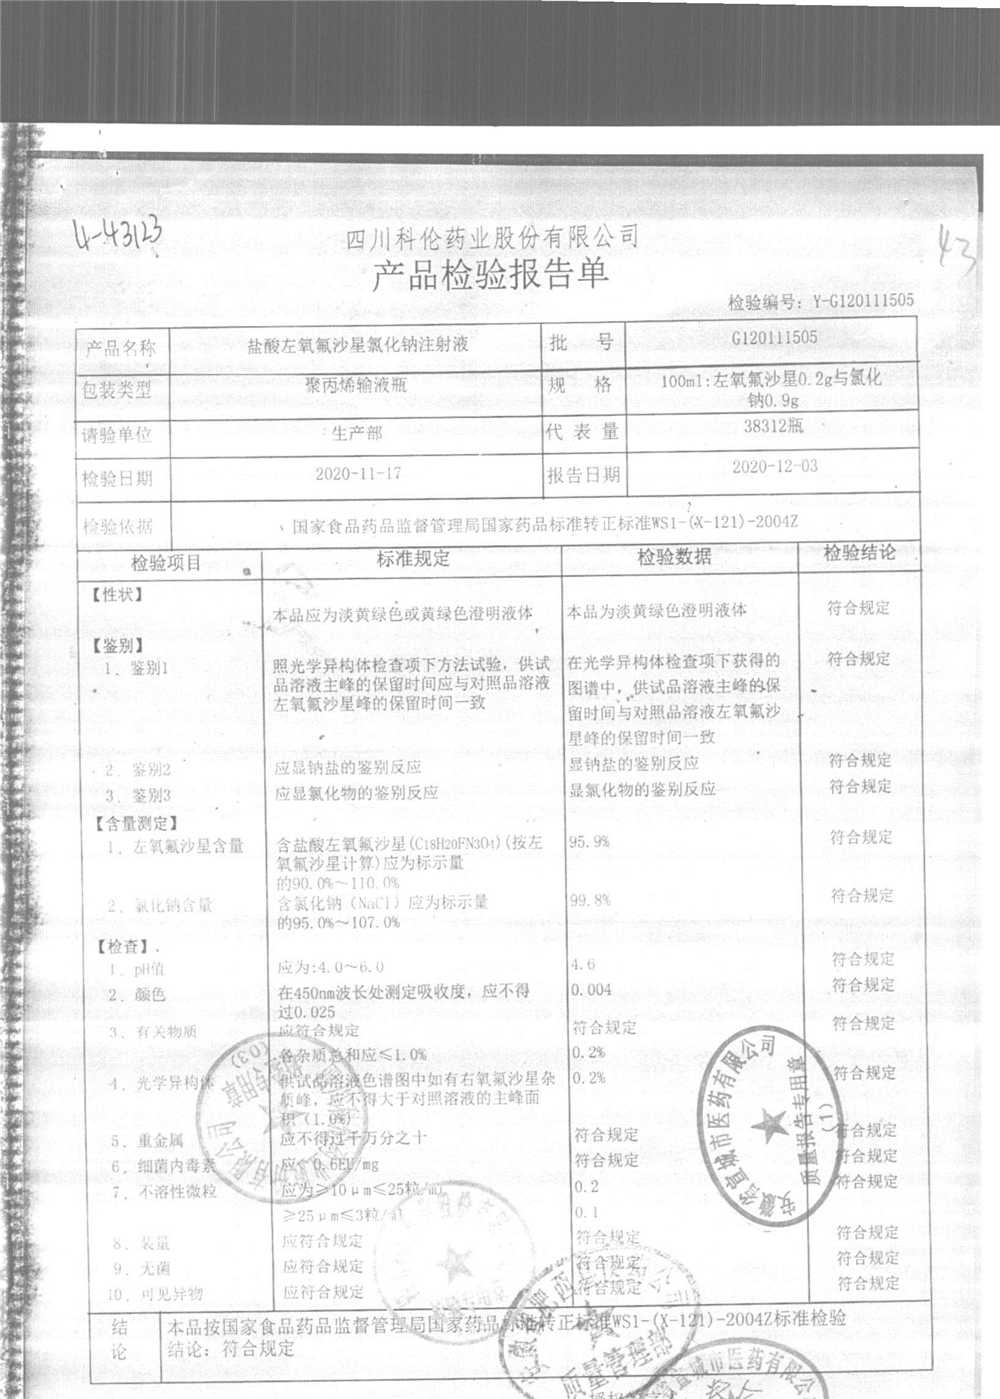 4-43123
43
四川科伦药业股份有限公司
产品检验报告单
检验编号: Y-G120111505
产品名称 盐酸左氧氟沙星氯化钠注射液 批 号 G120111505
包装类型 聚丙烯输液瓶 规 格 100ml:左氧氟沙星0.2g与氯化
钠0.9g
请验单位 生产部 代 表 量 38312瓶
检验日期 2020-11-17 报告日期 2020-12-03
检验依据 国家食品药品监督管理局国家药品标准转正标准WS1-(X-121)-2004Z
检验项目 标准规定 检验数据 检验结论
【性状】
本品应为淡黄绿色或黄绿色澄明液体 本品为淡黄绿色澄明液体 符合规定
【鉴别】
1、鉴别1 照光学异构体检查项下方法试验，供试 在光学异构体检查项下获得的 符合规定
品溶液主峰的保留时间应与对照品溶液 图谱中，供试品溶液主峰的保
左氧氟沙星峰的保留时间一致 留时间与对照品溶液左氧氟沙
星峰的保留时间一致
2、鉴别2 应显钠盐的鉴别反应 显钠盐的鉴别反应 符合规定
3、鉴别3 应显氯化物的鉴别反应 显氯化物的鉴别反应 符合规定
【含量测定】
1、左氧氟沙星含量 含盐酸左氧氟沙星(C18H20FN3O4)(按左 95.9% 符合规定
氧氟沙星计算)应为标示量
的90.0%～110.0%
2、氯化钠含量 含氯化钠（NaCl）应为标示量 99.8% 符合规定
的95.0%～107.0%
【检查】
1、pH值 应为:4.0～6.0 4.6 符合规定
2、颜色 在450nm波长处测定吸收度，应不得 0.004 符合规定
过0.025
3、有关物质 应符合规定 符合规定 符合规定
各杂质总和应≤1.0% 0.2%
4、光学异构体 供试品溶液色谱图中如有右氧氟沙星杂 0.2% 符合规定
质峰，应不得大于对照溶液的主峰面
积（1.0%）
5、重金属 应不得过千万分之十 符合规定 符合规定
6、细菌内毒素 应 0.6EU/mg 符合规定 符合规定
7、不溶性微粒 应为≥10μm≤25粒/ml 0.2 符合规定
≥25μm≤3粒/ml 0.1
8、装量 应符合规定 符合规定 符合规定
9、无菌 应符合规定 符合规定 符合规定
10、可见异物 应符合规定 符合规定 符合规定
结 论 本品按国家食品药品监督管理局国家药品标准转正标准WS1-(X-121)-2004Z标准检验
结论：符合规定
安徽省宣城市医药有限公司
质量报告专用章
(1)
(03)
有限公司
专用章
质量管理部
宣城市医药有限公